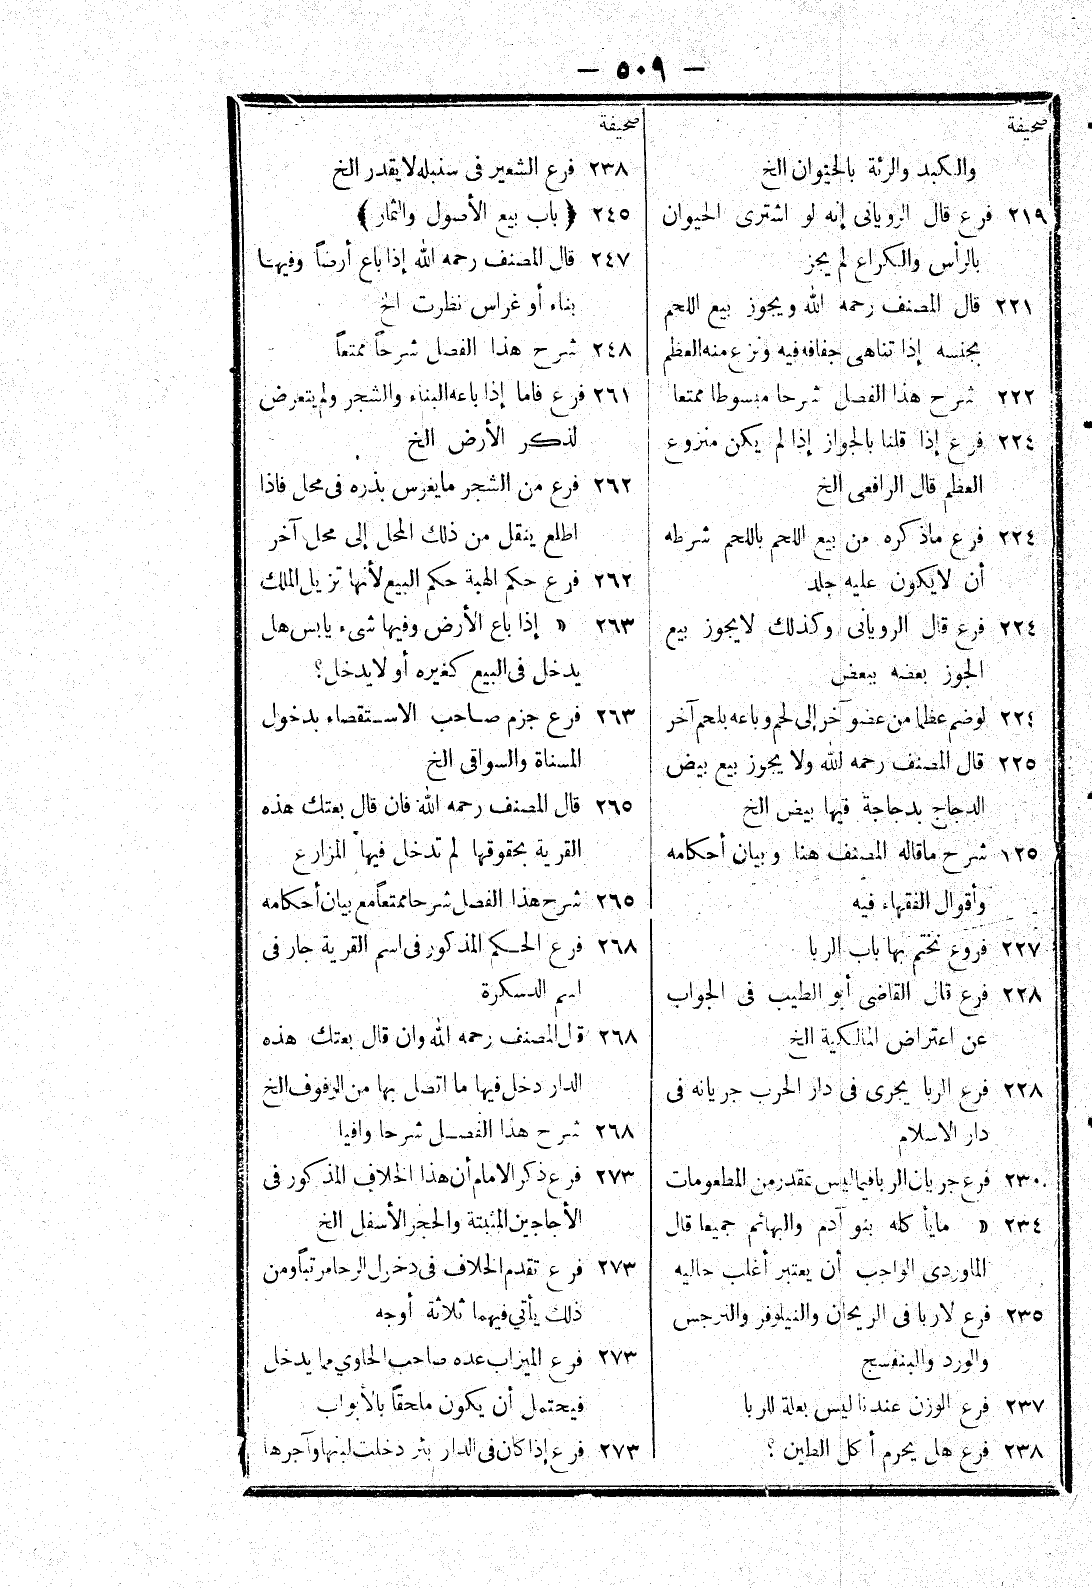 — ٥٠٩ —
صحيفة
والكبد والرئة بالحيوان الخ
٢١٩ فرع قال الروياني إنه لو اشترى الحيوان
بالرأس والكراع لم يجز
٢٢١ قال المصنف رحمه الله ويجوز بيع اللحم
بجنسه إذا تناهى جفافه فيه ونزع منه العظم
٢٢٢ شرح هذا الفصل شرحا مبسوطا ممتعا
٢٢٤ فرع إذا قلنا بالجواز إذا لم يكن منزوع
العظم قال الرافعى الخ
٢٢٤ فرع ماذكره من بيع اللحم باللحم شرطه
أن لايكون عليه جلد
٢٢٤ فرع قال الرويانى وكذلك لايجوز بيع
الجوز بعضه ببعض
٢٢٤ لوضم عظما من عضو آخر إلى لحم وباعه بلحم آخر
٢٢٥ قال المصنف رحمه الله ولا يجوز بيع بيض
الدجاج بدجاجة فيها بيض الخ
١٢٥ شرح ماقاله المصنف هنا وبيان أحكامه
وأقوال الفقهاء فيه
٢٢٧ فروع نختم بها باب الربا
٢٢٨ فرع قال القاضى أبو الطيب فى الجواب
عن اعتراض المالكية الخ
٢٢٨ فرع الربا يجرى فى دار الحرب جريانه فى
دار الاسلام
٢٣٠ فرع جريان الربا فيما ليس بمقدر من المطعومات
٢٣٤ « مايأكله بنو آدم والبهائم جميعا قال
الماوردى الواجب أن يعتبر أغلب حاليه
٢٣٥ فرع لاربا فى الريحان والنيلوفر والنرجس
والورد والبنفسج
٢٣٧ فرع الوزن عندنا ليس بعلة للربا
٢٣٨ فرع هل يحرم أكل الطين ؟
صحيفة
٢٣٨ فرع الشعير فى سنبله لايقدر الخ
٢٤٥ ﴿ باب بيع الأصول والثمار ﴾
٢٤٧ قال المصنف رحمه الله إذا باع أرضاً وفيها
بناء أو غراس نظرت الخ
٢٤٨ شرح هذا الفصل شرحاً ممتعاً
٢٦١ فرع فاما إذا باعه البناء والشجر ولم يتعرض
لذكر الأرض الخ
٢٦٢ فرع من الشجر مايغرس بذره فى محل فاذا
اطلع ينقل من ذلك المحل إلى محل آخر
٢٦٢ فرع حكم الهبة حكم البيع لأنها تزيل الملك
٢٦٣ « إذا باع الأرض وفيها شىء يابس هل
يدخل فى البيع كغيره أو لايدخل؟
٢٦٣ فرع جزم صاحب الاستقصاء بدخول
المسناة والسواقى الخ
٢٦٥ قال المصنف رحمه الله فان قال بعتك هذه
القرية بحقوقها لم تدخل فيها المزارع
٢٦٥ شرح هذا الفصل شرحا ممتعاً مع بيان أحكامه
٢٦٨ فرع الحكم المذكور فى اسم القرية جار فى
اسم الدسكرة
٢٦٨ قال المصنف رحمه الله وان قال بعتك هذه
الدار دخل فيها ما اتصل بها من الرفوف الخ
٢٦٨ شرح هذا الفصل شرحا وافيا
٢٧٣ فرع ذكر الامام أن هذا الخلاف المذكور فى
الأجاجين المثبتة والحجر الأسفل الخ
٢٧٣ فرع تقدم الخلاف فى دخول الرحا مرتباً ومن
ذلك يأتي فيهما ثلاثة أوجه
٢٧٣ فرع الميزاب عده صاحب الحاوي مما يدخل
فيحتمل أن يكون ملحقاً بالأبواب
٢٧٣ فرع إذا كان فى الدار بئر دخلت لبنها وآجرها